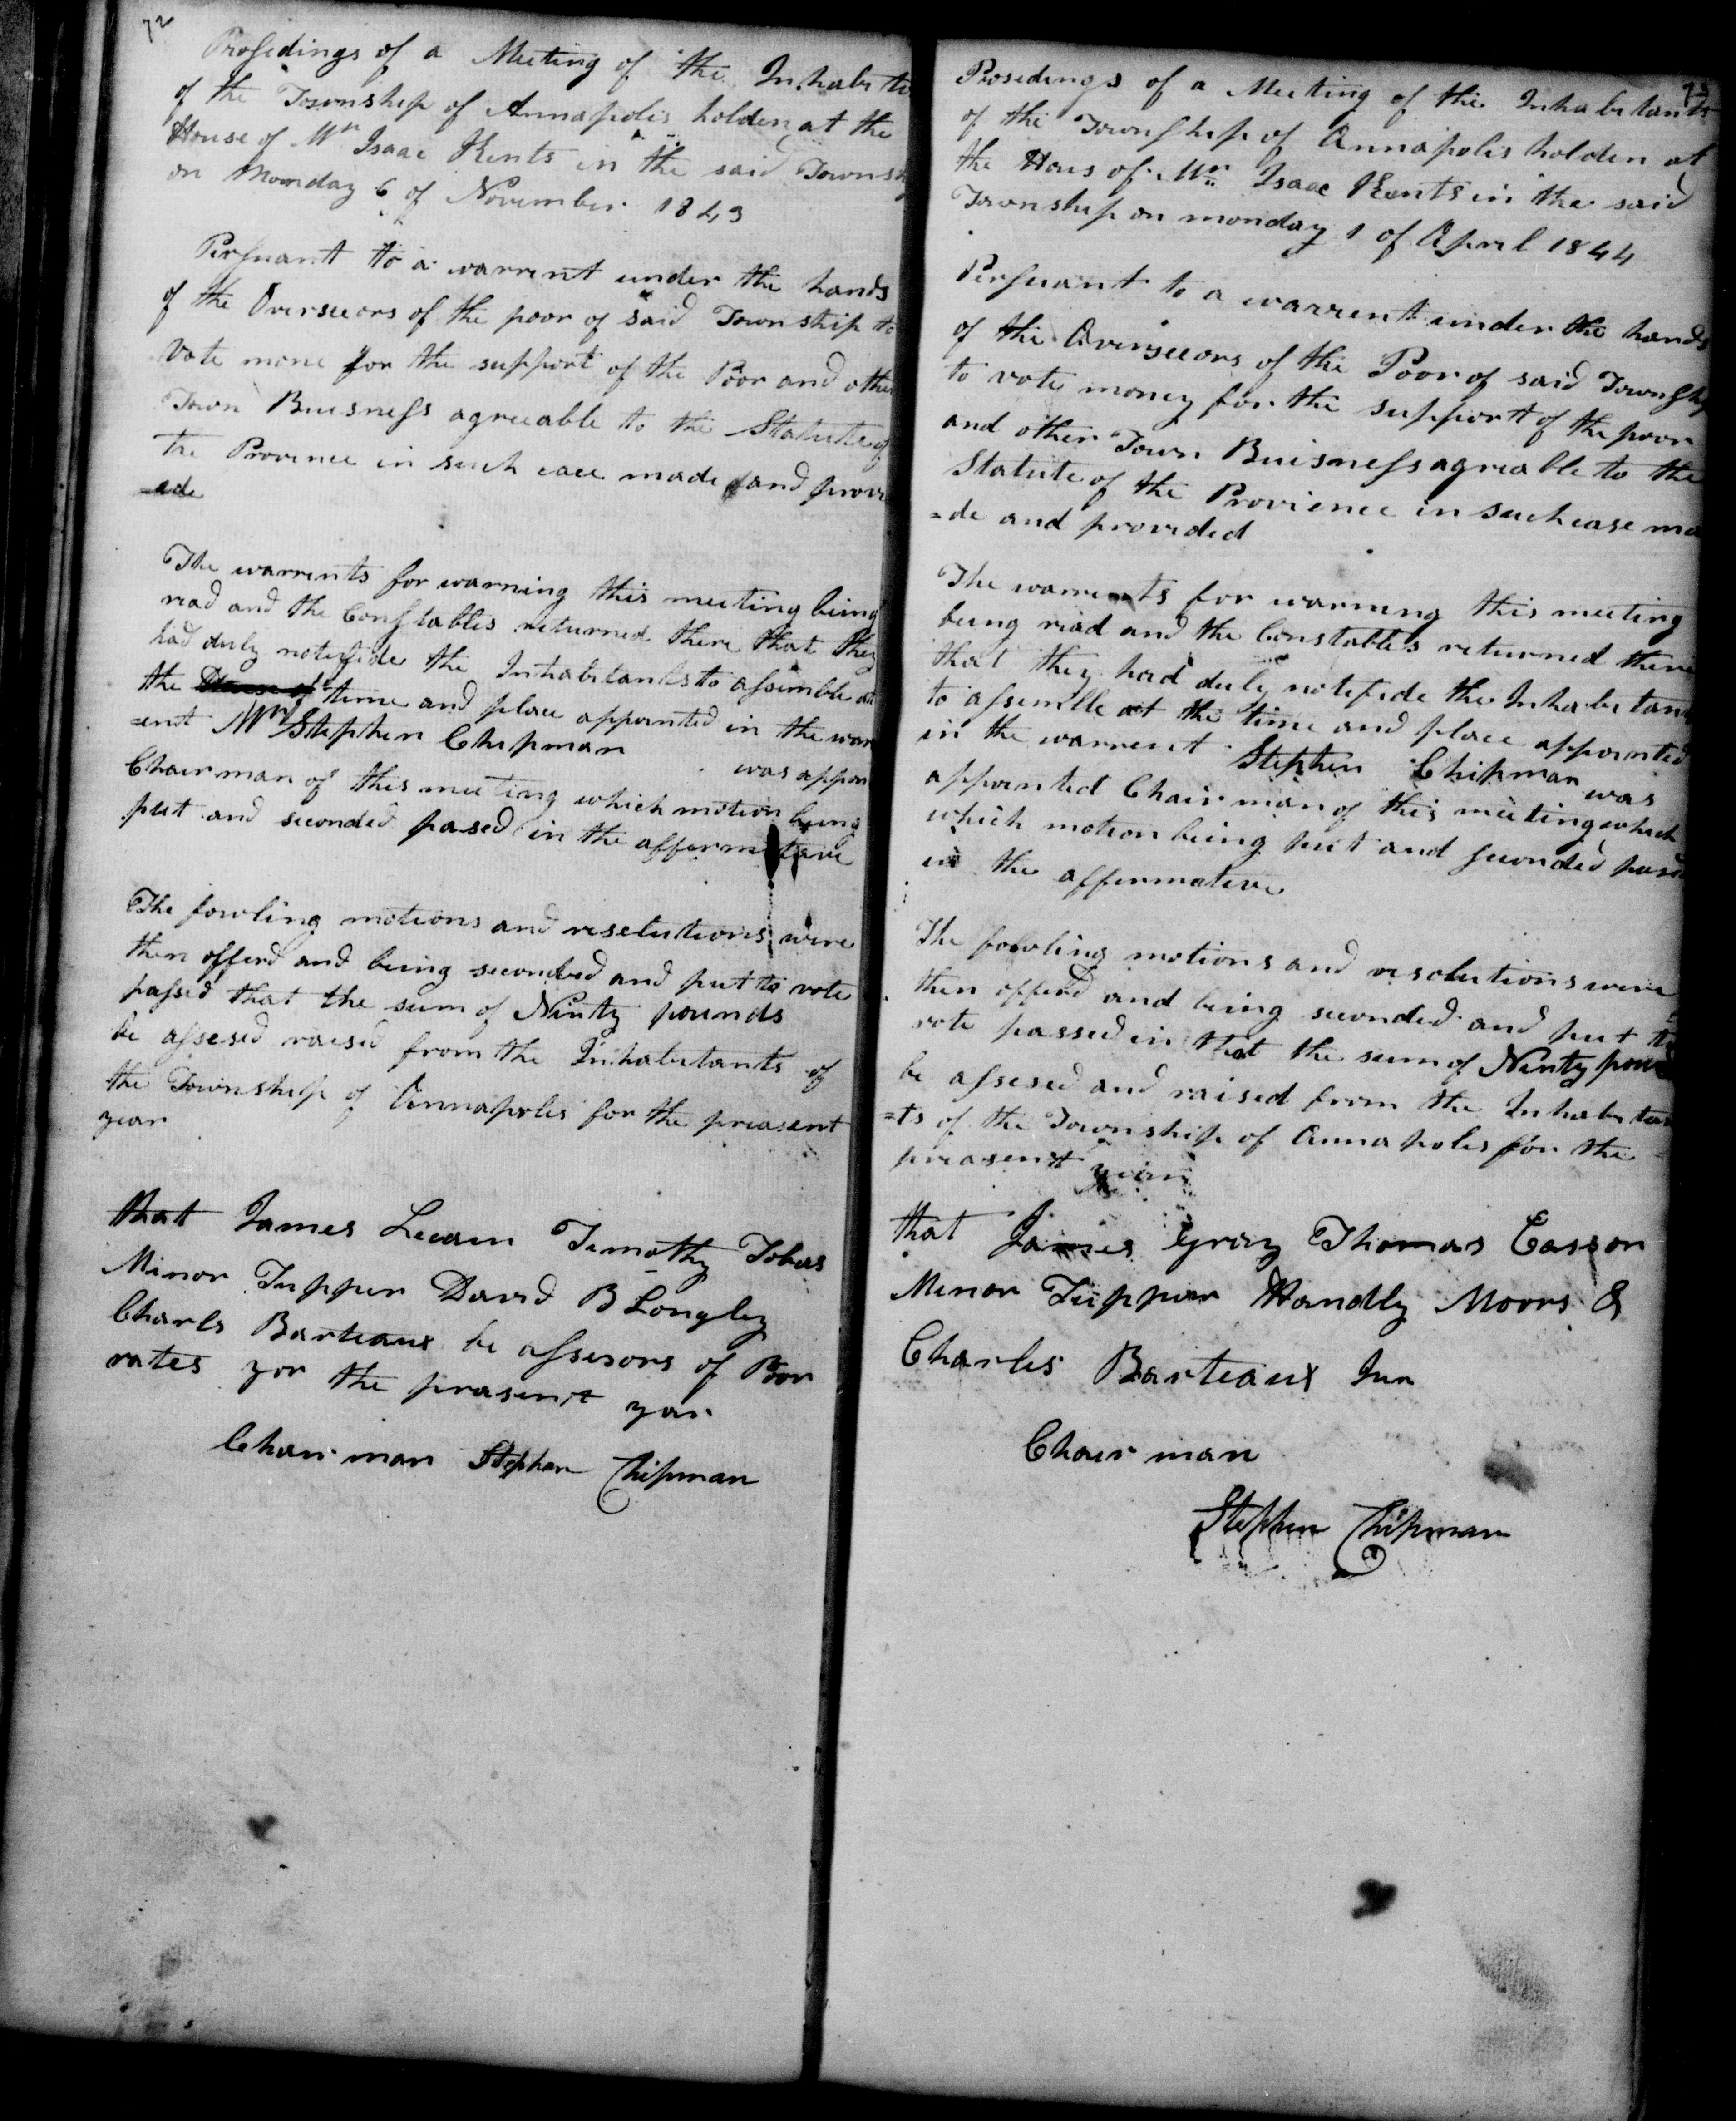 72
Prosedings of a Meeting of the Inhabita
of the Township of Annapolis holden at the
House of Mr Isaac Kents in the said Townsh
on Monday 6 of November 1843
Persuant to a warrent under the hands
of the Overseeors of the poor of said Township to
Vote mone for the support of the Poor and other
Town Buisness agreeable to the Statute of
the Province in such cace made and provi
=ede
The warrents for warning this meeting being
read and the Constables returned there that they
had duly notifide the Inhabitants to assemble at
the House of time and place appointed in the warr
=ent Mr Stephen Chipman was appoin
Chairman of this meeting which motion being
put and seconded pased in the affermetave
The fowling motions and resolutions were
then offerd and being seconded and put to vote
passed that the sum of Ninty pounds
be assesed raised from the Inhabitants of
the Township of Annapolis for the preasent
year
that James Lecain Timothy Tobias
Minor Tupper David B Longley
Charls Barteaux be assesors of Poor
rates for the prasent year
Chairman Stephen Chipman
73
Prosedings of a Meeting of the Inhabitants
of the Township of Annapolis holden at
the Hous of Mr Isaac Kents in the said
Township on monday 1 of April 1844
Persuant to a warrent under the hands
of the Overseeors of the Poor of said Townshi
to vote money for the support of the poor
and other Town Buisness agreable to the
Statute of the Provience in such case ma
=de and provided
The warrents for warning this meeting
being read and the Constables returned there
that they had duly notifide the Inhabitan
to assemble at the time and place appointed
in the warrent Stephen Chipman was
appointed Chairman of this meeting which
which motion being put and seconded pased
in the affermative
The fowling motions and resolutions were
then offerd and being seconded and put to
vote passed in that the sum of Ninty pound
be assesed and raised from the Inhabitan
=ts of the Township of Annapolis for the
preasent year
that James Gray Thomas Easson
Minor Tupper Handly Moors &
Charles Barteaux Jun
Chairman
Stephen Chipman